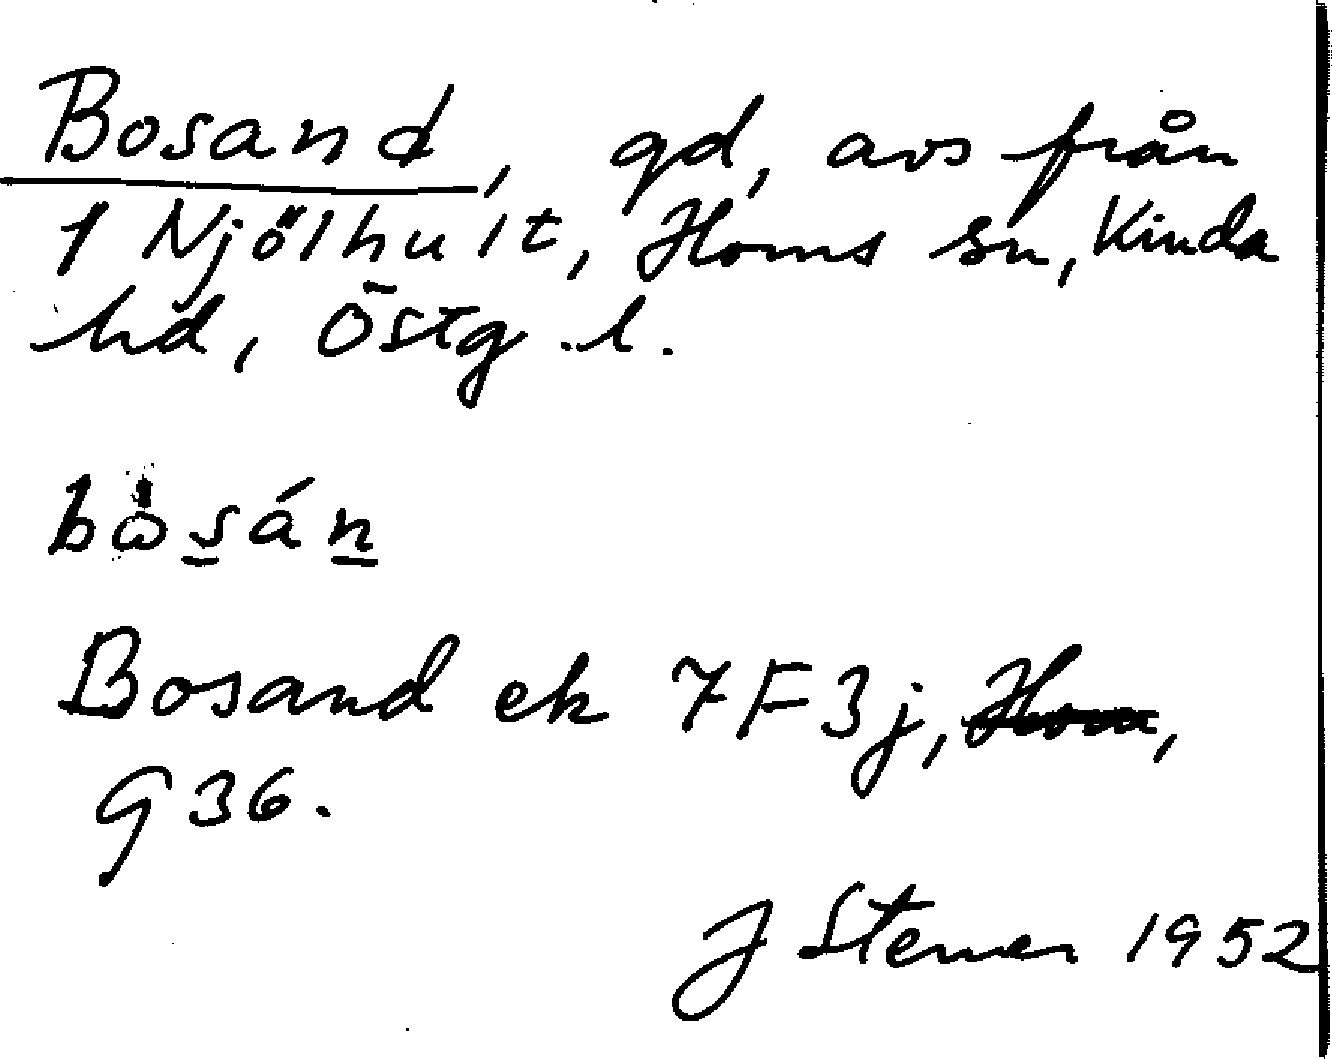 Bosand, gd, avs från
1 Njölhult, Horns sn, Kinda
hd, Östg. l.
bo͕sán
Bosand ek 7F3j, Horn,
G36.
J Stemer 1952